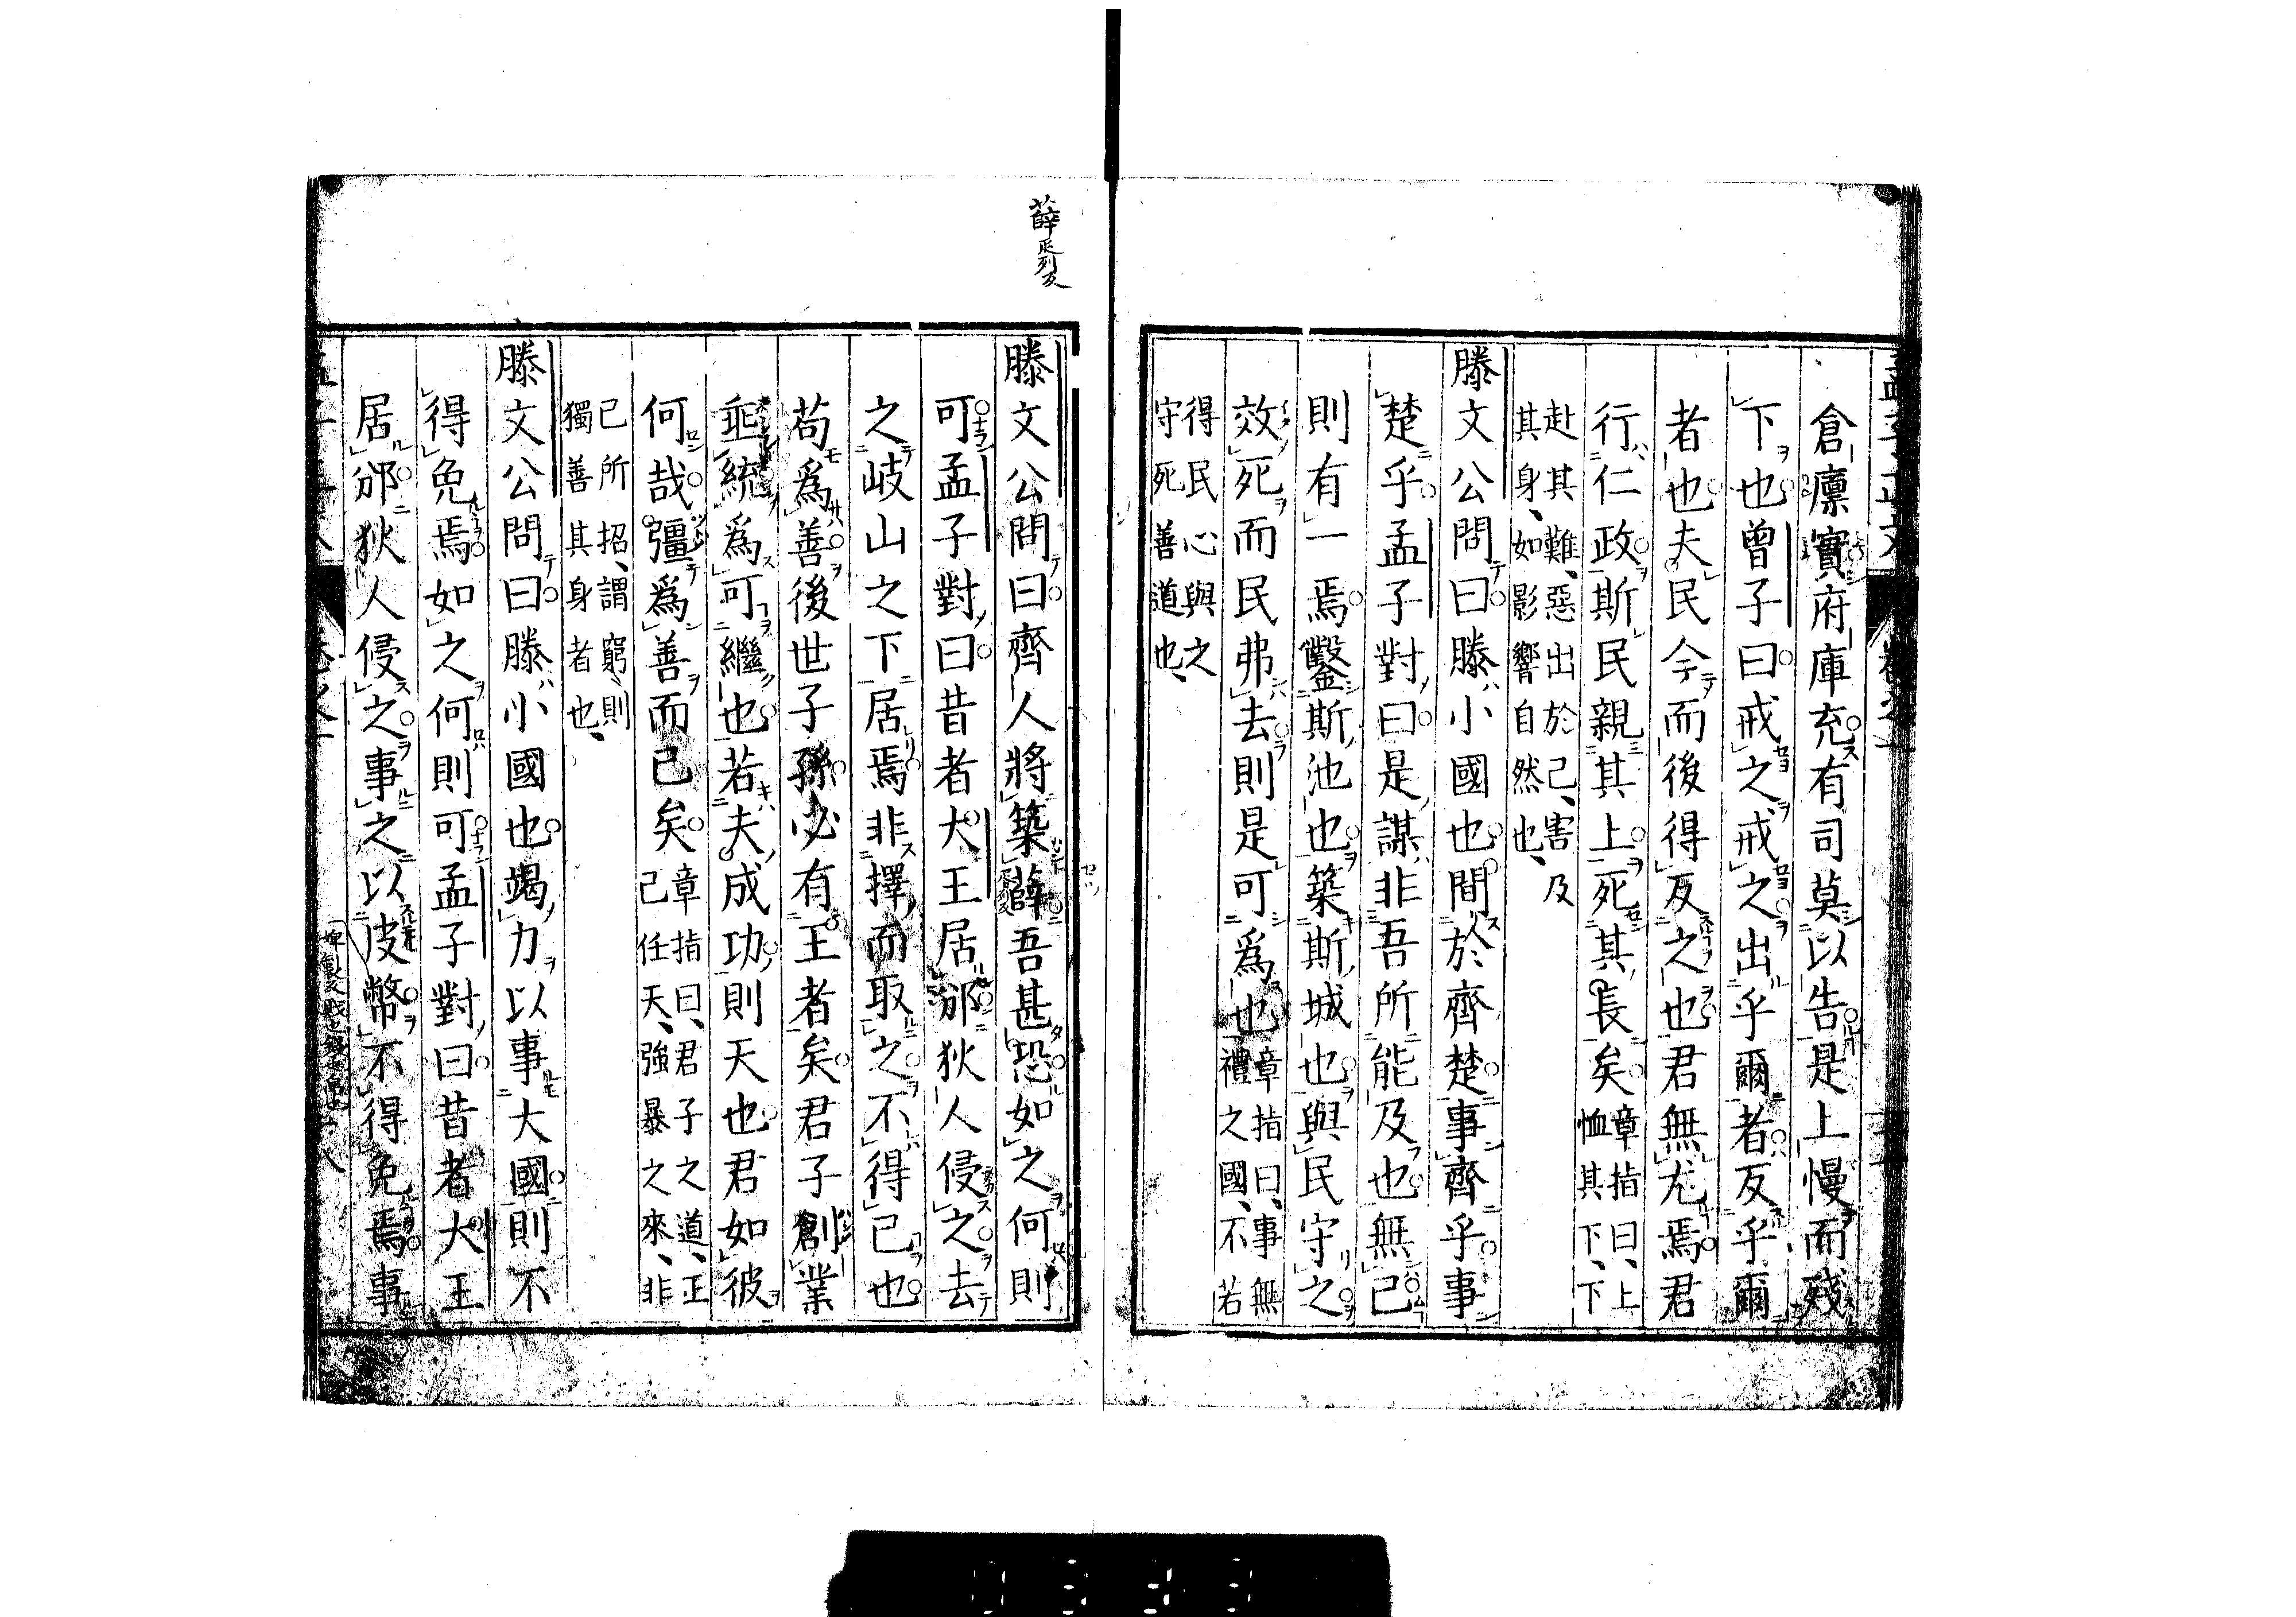 倉廩實府庫充有司莫以告是上慢而殘
下也曾子曰戒之戒之出乎爾者反乎爾
者也夫民今而後得反之也君無尤焉君
行仁政斯民親其上死其長矣章指曰、上恤其下、下
赴其難、惡出於己、害及其身、如影響自然也、
滕文公問曰滕小國也間於齊楚事齊乎事
楚乎孟子對曰是謀非吾所能及也無已
則有一焉鑿斯池也築斯城也與民守之
效死而民弗去則是可爲也章指曰、事無禮之國、不若
得民心與之守死善道也、
薛
滕文公問曰齊人將築薛吾甚恐如之何則
可孟子對曰昔者大王居邠狄人侵之去
之岐山之下居焉非擇而取之不得已也
苟爲善後世子孫必有王者矣君子創業
垂統爲可繼也若夫成功則天也君如彼
何哉彊爲善而已矣章指曰、君子之道、正己任天、強暴之來、非
己所招、謂窮則獨善其身者也、
滕文公問曰滕小國也竭力以事大國則不
得免焉如之何則可孟子對曰昔者大王
居邠狄人侵之事之以皮幣不得免焉事